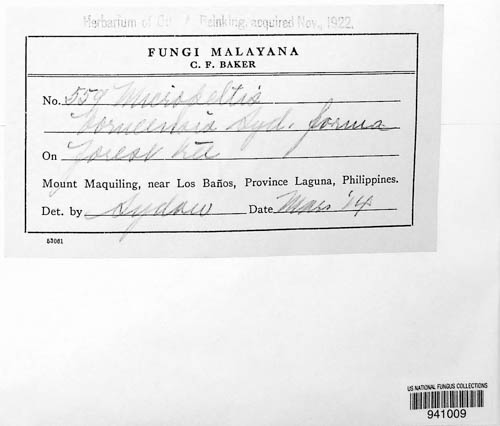 Herbarium of Otto A. Reinking, acquired Nov., 1922.
FUNGI MALAYANA
C. F. BAKER
No. 559 Micropeltis
borneensis Syd. forma
On Forest
Mount Maquiling, near Los Baños, Province Laguna, Philippines.
Det. by Sydow Date Mars '14
53061
US NATIONAL FUNGUS COLLECTIONS
941009